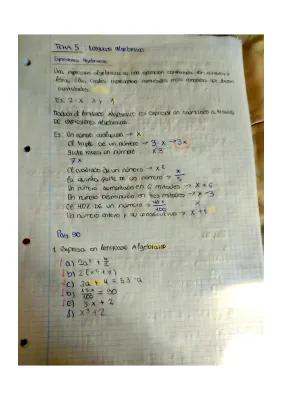 TEMA 5 Lenguaje algebraico
Expresiones Algebraicas
Una expresión algebraica es una operación combinada con números y
letras. Las cuales representan cantidades
cantidades.
Ej: 2·x x y
Traducir al lenguaje algebraico es expresar un enunciado a través
de expresiones algebraicas.
Ej: Un número cualquiera → x
El triple de un número → 3·x → 3x
Siete veces un número x3
7x
El cuadrado de un número → x²
La quinta parte de un número → x/5
Un número aumentado en 6 unidades → x + 6
Un número disminuido en tres unidades → x - 3
El 40% de un número = 40x/100
Un número entero y su consecutivo → x + 1
Pag 90
1. Expresa en lenguaje Algebraico
a) 2a²
b) 2(x² + x)
c) 3a + 4 = 53·a
= 90
e) 3·x + 2
f) x³ + 2